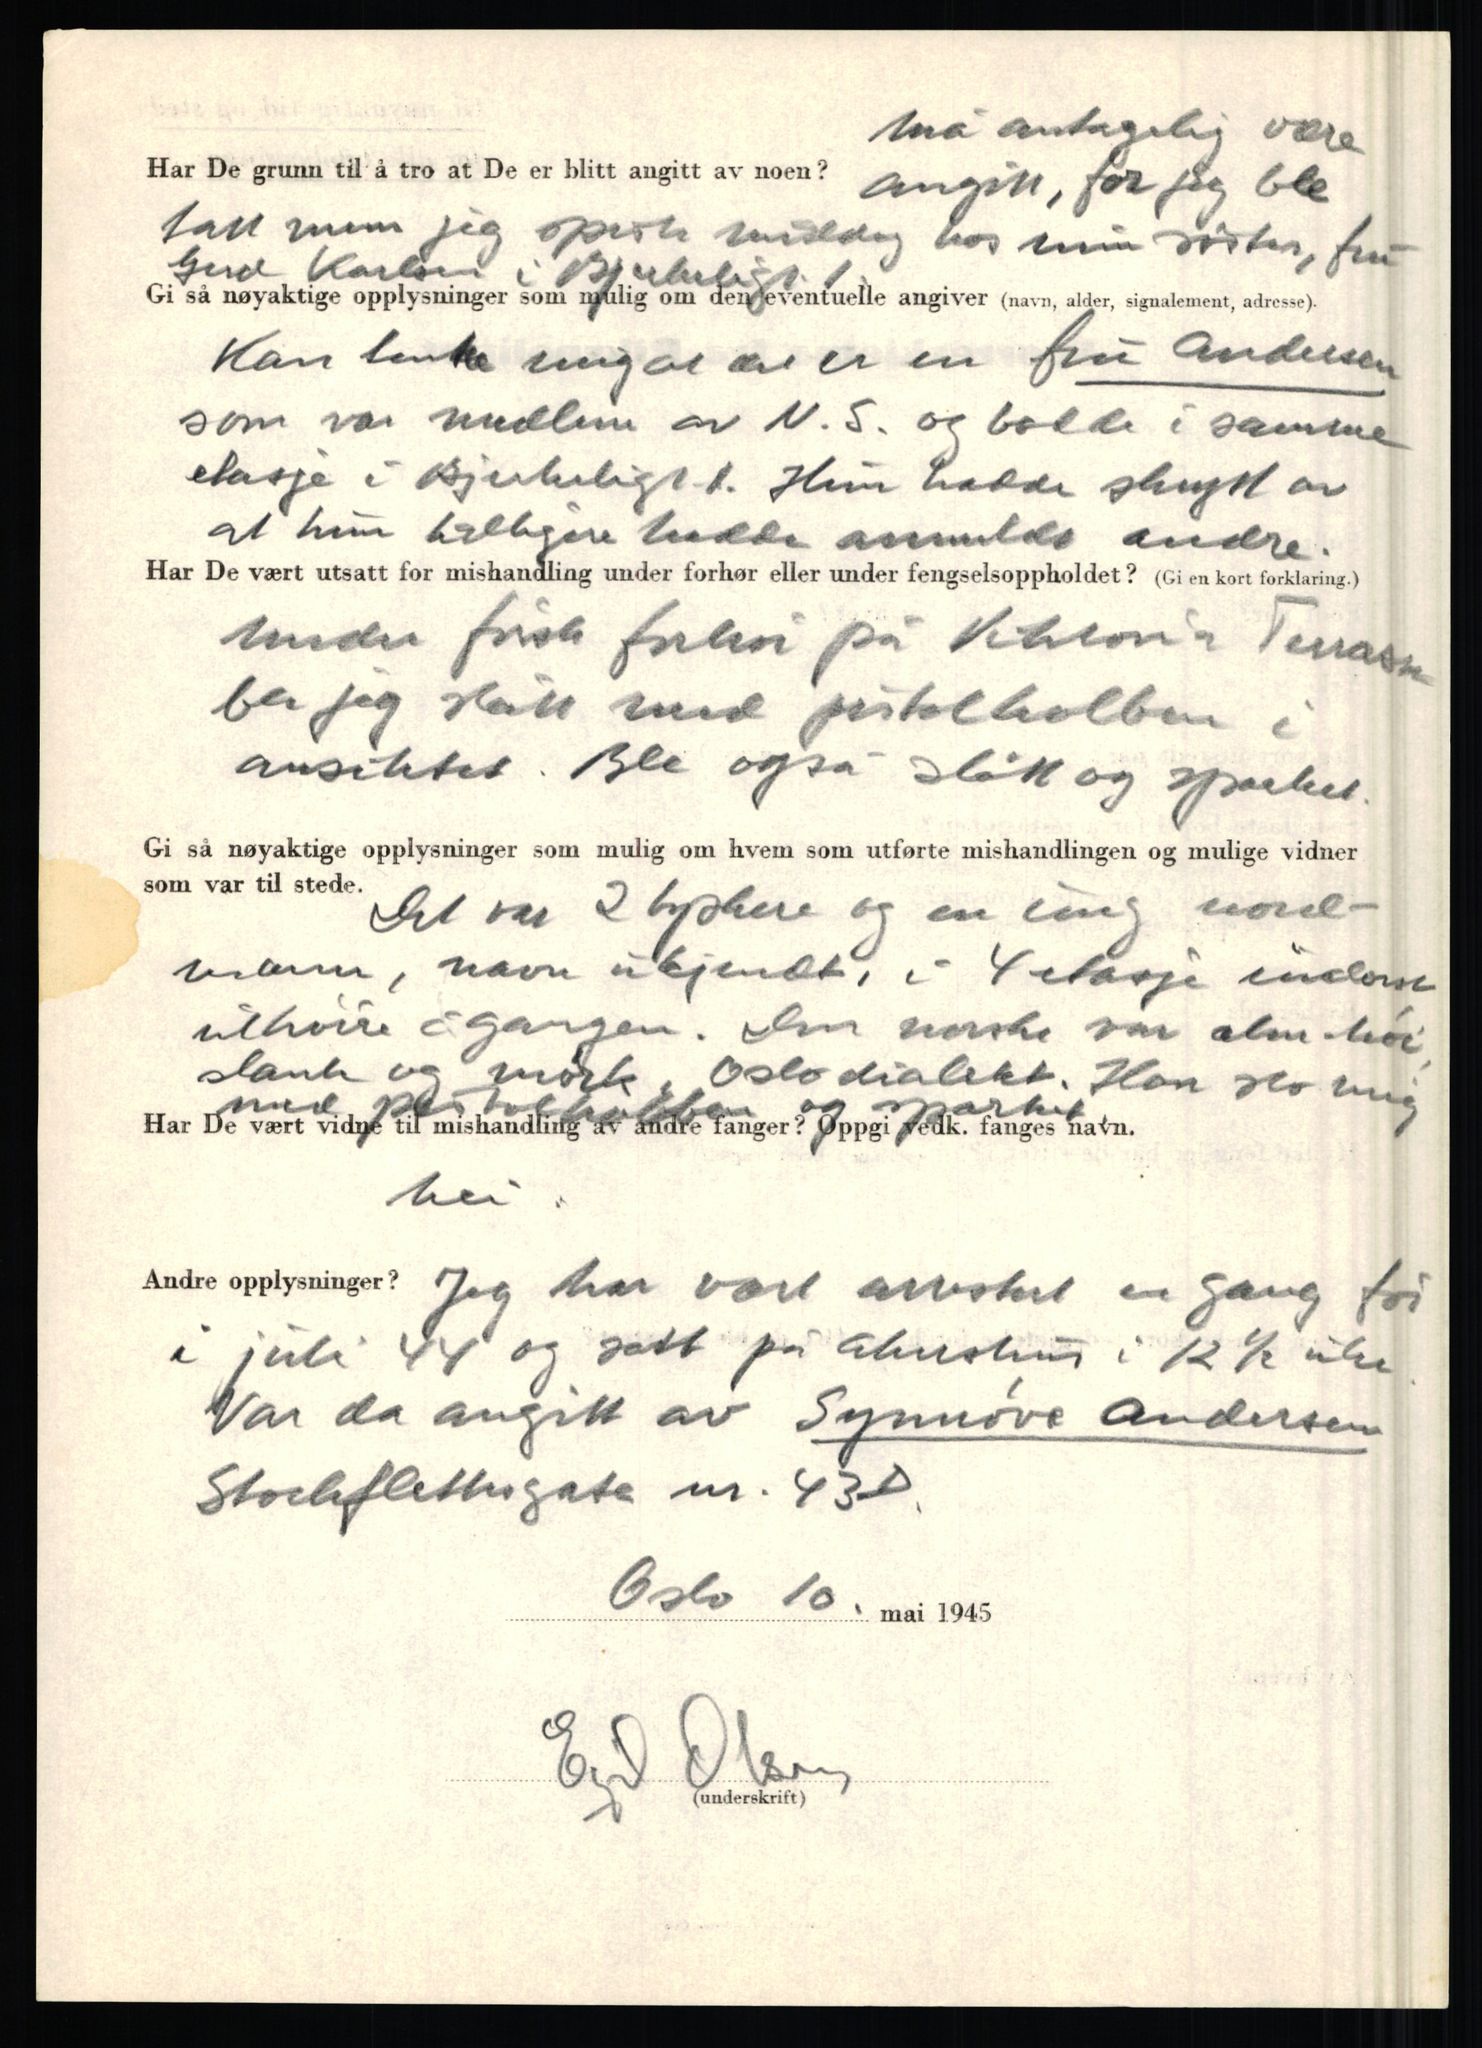 må antagelig være
Har De grunn til å tro at De er blitt angitt av noen? angitt, for jeg ble
tatt mens jeg spiste middag hos min søster, frü
Gerd Karlsen i Bjerkeligt. 1.
Gi så nøyaktige opplysninger som mulig om den eventuelle angiver (navn, alder, signalement, adresse).
Kan tenke mig at det er en frü Andersen
som var medlem av N.S. og bodde i samme
etasje i Bjerkeligt. 1. Hün hadde skrytt av
at hün tidligere hadde anmeldt andre.
Har De vært utsatt for mishandling under forhør eller under fengselsoppholdet? (Gi en kort forklaring.)
Under første forhør på Viktoria Terrasse
ble jeg slått med pistolkolben i
ansiktet. Ble også slått og sparket.
Gi så nøyaktige opplysninger som mulig om hvem som utførte mishandlingen og mulige vidner
som var til stede. Det var 2 tyskere og en üng nord-
mann, navn ükjendt, i 4 etasje innerst
til høire i gangen. Den norske var alm. høi,
slank og mørk, Oslodialekt. Han slo mig
med pistolkolben og sparket.
Har De vært vidne til mishandling av andre fanger? Oppgi vedk. fanges navn.
Nei.
Andre opplysninger? Jeg har vært arrestert en gang før
i jüli 44 og satt på Akershüs i 12 1/2 üke.
Var da angitt av Synnøve Andersen
Stockflethsgate nr. 43D.
Oslo 10. mai 1945
Egil Olsen
(underskrift)